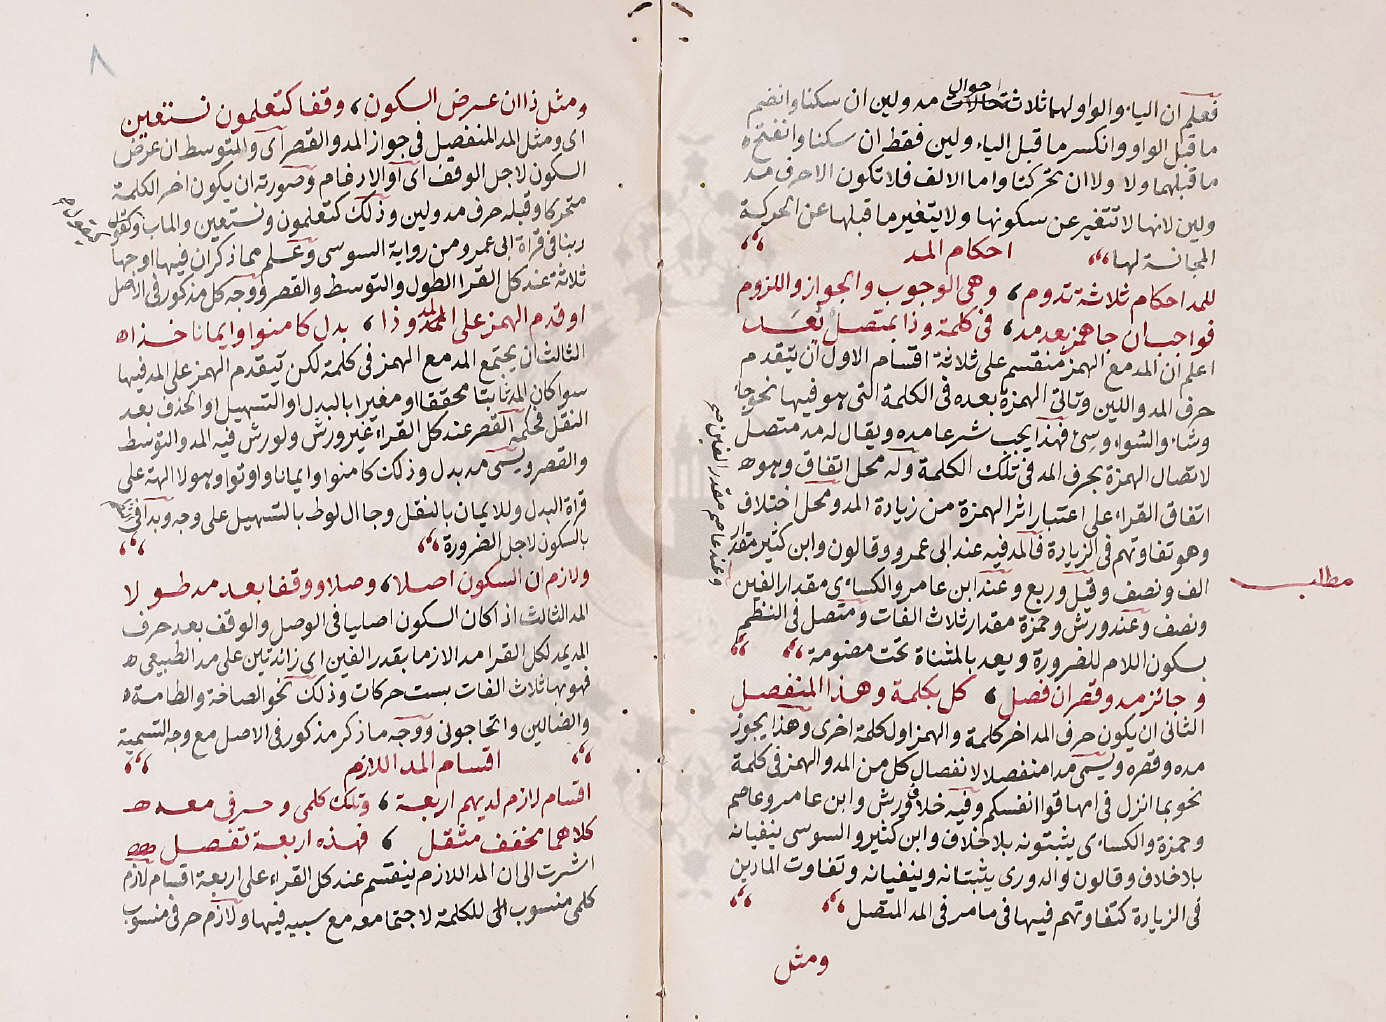 فعلم ان الياء والواو لهما ثلاث احوال مد ولين ان سكنا وانضم
ما قبل الواو وانكسر ما قبل الياء ولين فقط ان سكنا وانفتح
ما قبلهما ولا ولا ان تحركتا واما الالف فلا تكون الا حرف مد
ولين لانها لا تتغير عن سكونها ولا يتغير ما قبلها عن الحركة
المجانسة لها احكام المد
للمد احكام ثلاثة تدوم وهي الوجوب والجواز واللزوم
فواجب ان جا همز بعد مد في كلمة وذا بمتصل يعد
اعلم ان المد مع الهمز منقسم على ثلاثة اقسام الاول ان يتقدم
حرف المد واللين وتاتي الهمزة بعده في الكلمة التي هو فيها نحو جا
وشاء والسوء وسئ فهذا يجب شرعا مده ويقال له مد متصل
لاتصال الهمزة بحرف المد في تلك الكلمة وله محل اتفاق وهو
اتفاق القراء على اعتبار اثر الهمزة من زيادة المد ومحل اختلاف
وهو تفاوتهم في الزيادة فالمد فيه عند ابى عمرو وقالون وابن كثير مقدار
الف ونصف وقيل وربع وعند ابن عامر والكساءى مقدار الفين
وعند عاصم مقدار الفين
مطالب
ونصف وعند ورش وحمزة مقدار ثلاث الفات ومتصل في النظم
بسكون اللام للضرورة ويعد بالمثناة تحت مضمومة
وجائز مد وقصر ان فصل كل بكلمة وهذا المنفصل
الثاني ان يكون حرف المد اخر كلمة والهمز اول كلمة اخرى وهذا يجوز
مده وقصره ويسمى مدا منفصلا لانفصال كل من المد والهمز في كلمة
نحو بما انزل في امها قوا انفسكم وفيه خلاف فورش وابن عامر وعاصم
وحمزة والكساءى يثبتونه بلا خلاف وابن كثير والسوسى ينفيانه
بلا خلاف وقالون والدورى يثبتانه وينفيانه وتفاوت المادين
في الزيادة كتفاوتهم فيها في ما مر في المد المتصل
ومثل
٨
ومثل ذا ان عرض السكون وقفا كتعلمون نستعين
اى ومثل المد المنفصل في جواز المد والقصر اى والمتوسط ان عرض
السكون لاجل الوقف اى او الادغام وصورته ان يكون اخر الكلمة
متحركا وقبله حرف مد ولين وذلك كتعلمون ونستعين والماب وكقول
ربنا في قراة ابى عمرو من رواية السوسى وعلم مما ذكر ان فيها اوجها
ثلاثة عند كل القرا الطول والتوسط والقصر ووجه كل مذكور في الاصل
او قدم الهمز على المد وذا بدل كامنوا وايمانا خذا
الثالث ان يجتمع المد مع الهمز في كلمة لكن يتقدم الهمز على المد فيها
سوا كان المد ثابتا محققا او مغيرا بالبدل او التسهيل او الحذف بعد
النقل فحكمه القصر عند كل القراء غير ورش ولورش فيه المد والتوسط
والقصر ويسمى مد بدل وذلك كامنوا وايمانا واوتوا وهولا الهة على
قراة البدل وللايمان بالنقل وجا ال لوط بالتسهيل على وجه
بالسكون لاجل الضرورة
ولازم ان السكون اصلا وصلا ووقفا بعد مد طولا
المد الثالث اذا كان السكون اصليا في الوصل والوقف بعد حرف
المد يمد لكل القرا مد الازما بقدر الفين اى زائدتين على مد الطبيعي
فهو بها ثلاث الفات بست حركات وذلك نحو الصاخة والطامة
والضالين واتحاجونى ووجه ما ذكر مذكور في الاصل مع وجه التسمية
اقسام المد اللازم
اقسام لازم لديهم اربعة وتلك كلمى وحرفى معه
كلاهما مخفف مثقل فهذه اربعة تفصل
اشرت الى ان المد اللازم ينقسم عند كل القراء على اربعة اقسام لازم
كلمى منسوب الى للكلمة لاجتماعه مع سببه فيها ولازم حرفى منسوب